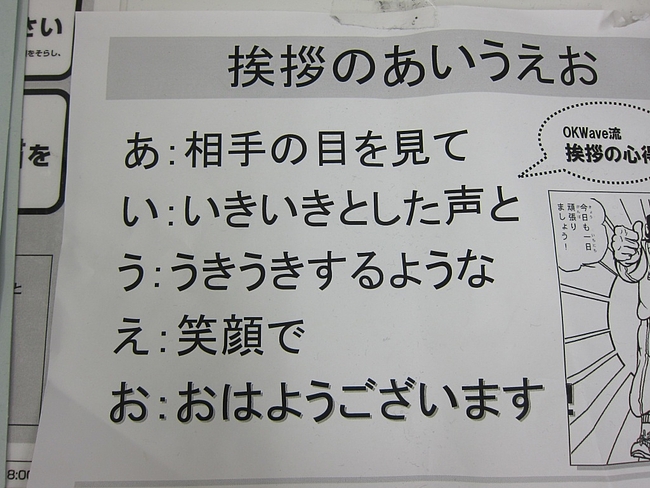 挨拶のあいうえお
あ：相手の目を見て
い：いきいきとした声と
う：うきうきするような
え：笑顔で
お：おはようございます！
OKWave流
挨拶の心得
今日も一日
頑張り
ましょう！
さい
をそらし、
を
と
8:00